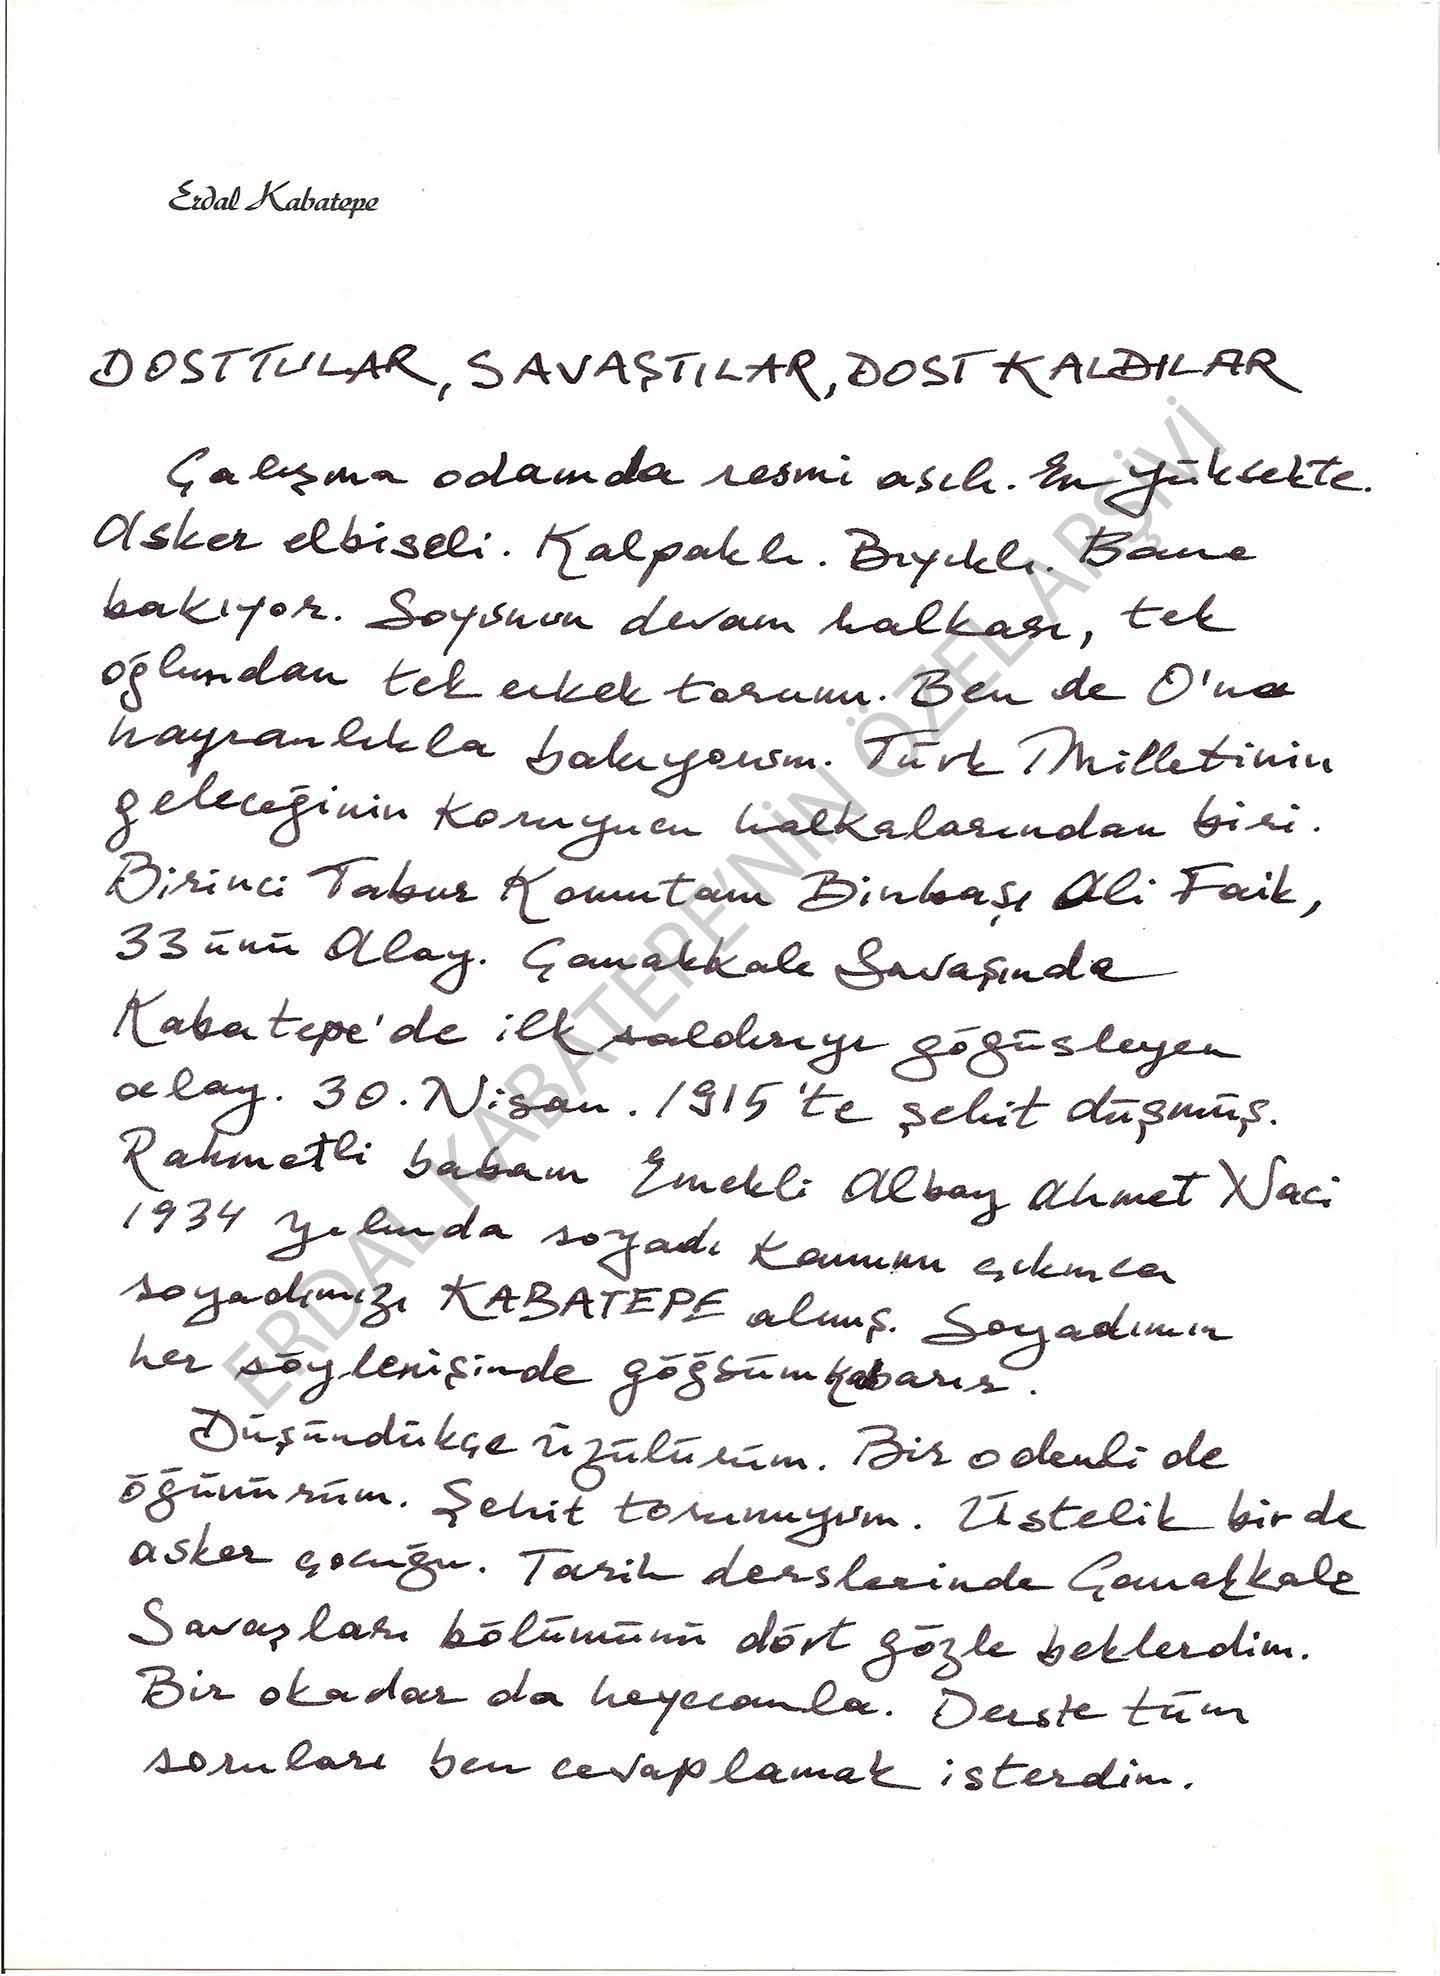 Erdal Kabatepe
DOSTTULAR, SAVAŞTILAR, DOST KALDILAR
Çalışma odamda resmi asılı. En yüksekte.
Asker elbiseli. Kalpaklı. Bıyıklı. Bana
bakıyor. Soyunun devam halkası, tek
oğlundan tek erkek torunu. Ben de O'na
hayranlıkla bakıyorum. Türk Milletinin
geleceğinin koruyucu halkalarından biri.
Birinci Tabur Komutanı Binbaşı Ali Faik,
33 ünü Alay. Çanakkale Savaşında
Kabatepe'de ilk saldırıyı göğüsleyen
alay. 30. Nisan. 1915'te şehit düşmüş.
Rahmetli babam Emekli Albay Ahmet Naci
1934 yılında soyadı kanunu çıkınca
soyadımızı KABATEPE almış. Soyadımın
her söylenişinde göğsüm kabarır.
Düşündükçe üzülürüm. Bir o denli de
öğünürüm. Şehit torunuyum. Üstelik bir de
asker çocuğu. Tarih derslerinde Çanakkale
Savaşları bölümünü dört gözle beklerdim.
Bir o kadar da heyecanla. Derste tüm
soruları ben cevaplamak isterdim.
ERDAL KABATEPE'NİN ÖZEL ARŞİVİ